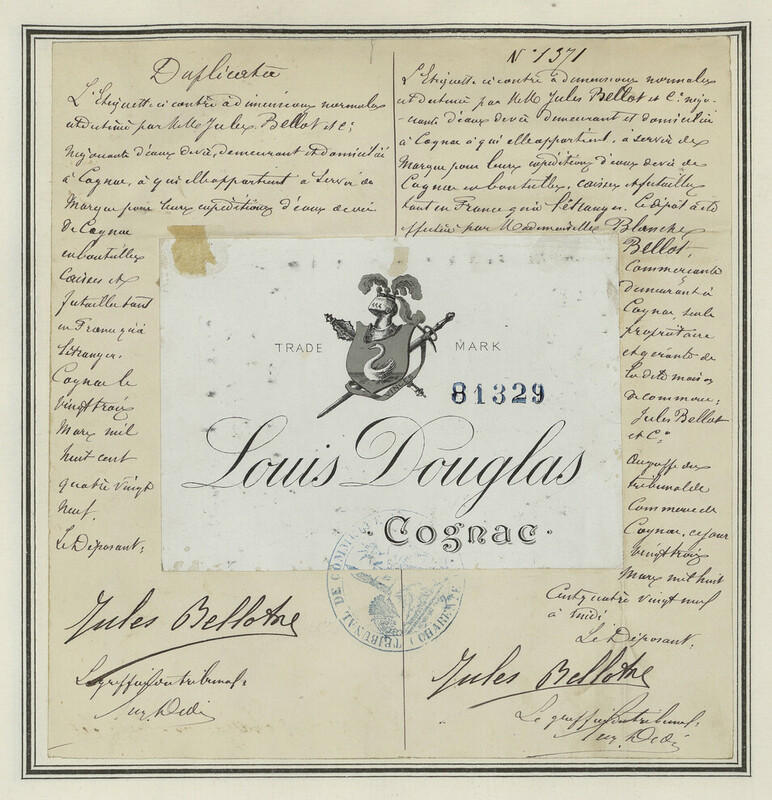 Duplicata
L'Etiquette ci contre à dimensions normales
est destinée par M.M. Jules Bellot et Cie
négociants d'eaux de vie, demeurant et domiciliés
à Cognac, à qui elle appartient à servir de
Marque pour leurs expéditions d'eaux de vie
de Cognac
en bouteilles
Caisses et
futailles tant
en France qu'à
l'étranger.
Cognac le
vingt trois
Mars mil
huit cent
quatre vingt
neuf.
Le Déposant:
Jules Bellot &
Le greffier du tribunal:
N° 1371
L'Etiquette ci contre à dimensions normales
est destinée par M.M. Jules Bellot et Cie négo-
-ciants d'eaux de vie demeurant et domiciliés
à Cognac à qui elle appartient, à servir de
Marque pour leurs expéditions d'eaux de vie de
Cognac en bouteilles, caisses et futailles
tant en France qu'à l'étranger. Le dépôt a été
effectué par Mademoiselle Blanche
Bellot,
Commerçante
demeurant à
Cognac, seule
propriétaire
et gérante de
la dite maison
de commerce:
Jules Bellot
et Cie
Au greffe du
tribunal de
Commerce de
Cognac, ce jour
vingt trois
Mars mil huit
Cent quatre vingt neuf
à midi
Le Déposant:
Jules Bellot &
Le greffier du tribunal:
TRADE MARK
81329
Louis Douglas
Cognac
TRIBUNAL DE COMMERCE
(CHARENTE)